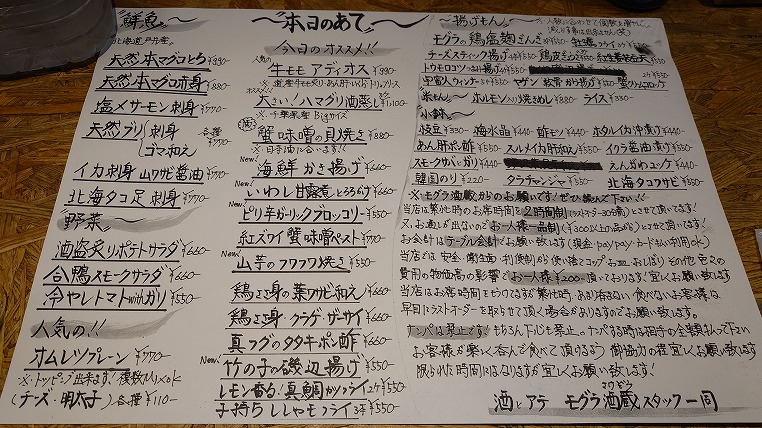 〜本日のあて〜
鮮魚〜
北海道戸井産
天然本マグロとろ ¥990-
天然本マグロ赤身 ¥880-
塩〆サーモン刺身 ¥770-
天然ブリ 刺身 ゴマ和え 各種 ¥770-
イカ刺身 山ワサビ醤油 ¥770-
北海タコ足刺身 ¥770-
野菜〜
酒盗炙りポテトサラダ ¥660-
合鴨スモークサラダ ¥660-
冷やしトマトwithガリ ¥550-
人気の!!
オムレツプレーン ¥770-
※トッピング出来ます!複数Mix ok
(チーズ・明太子)各種 ¥110-
今日のオススメ!!
人気の
牛モモ アディオス ¥990-
オススメ!!
大きい!ハマグリ油蒸し 2ケ ¥1,100
※千葉県産 Bigサイズ
蟹味噌の貝焼き ¥880-
※日本酒に合います!!
New! 海鮮かき揚げ ¥660-
New! いわし甘露煮とろろかけ ¥660-
New! ピリ辛ガーリックブロッコリー ¥550-
紅ズワイ蟹味噌ペースト ¥770-
New! 山芋のフワフワ焼き ¥550-
鶏ささ身の葉ワサビ和え ¥660-
鶏ささ身・クラゲ・ザーサイ ¥660-
真フグのタタキ・ポン酢 ¥660-
New! 竹の子の磯辺揚げ ¥550-
レモン香る・真鯛カツフライ 2ケ ¥550-
子持ちししゃモフライ 3本 ¥550-
〜揚げもん〜
モグラの鶏塩麹ざんぎ
チーズスティック揚げ
甲富久ウィンナー
〜米もん〜 ホルモン入り焼きめし ¥880- ライス ¥330-
〜小鉢〜
枝豆 ¥330- 梅水晶 ¥440- 酢モツ ¥440- ホタルイカ沖漬け ¥440-
あん肝ポン酢 ¥550- スルメイカ肝和え ¥550- イクラ醤油漬け ¥550-
スモークサバガリ ¥440- えんがわユッケ ¥440-
韓国のり ¥220- タラチャンジャ ¥550- 北海タコワサビ ¥550-
※モグラ酒蔵からのお願いです!ぜひ読んで下さい!!
当店は繁忙時のお席時間を2時間制(ラストオーダー30分前)とさせて頂いてます!
又、お通しが出ないのでお一人様一品制(¥300以上の品から)とさせて頂いてます!
お会計はテーブル会計でお願い致します(現金・paypay・カード払い利用ok)
当店では安全・衛生面・利便制から使い捨てコップ・お皿・おしぼりその他色々の
費用の物価高の影響でお一人様¥200-頂いております!宜しくお願い致します
早目にラストオーダーを取らせて頂く場合がありますのでお願い致します。
ナンパは禁止です!もちろん下心も禁止。ナンパする時は相手の全額払んで下さい
お客様が楽しく呑んで食べて頂けるよう御協力の程宜しくお願い致します
限られた時間にはなりますが宜しくお願い致します!
酒とアテ モグラ酒蔵スタッフ一同